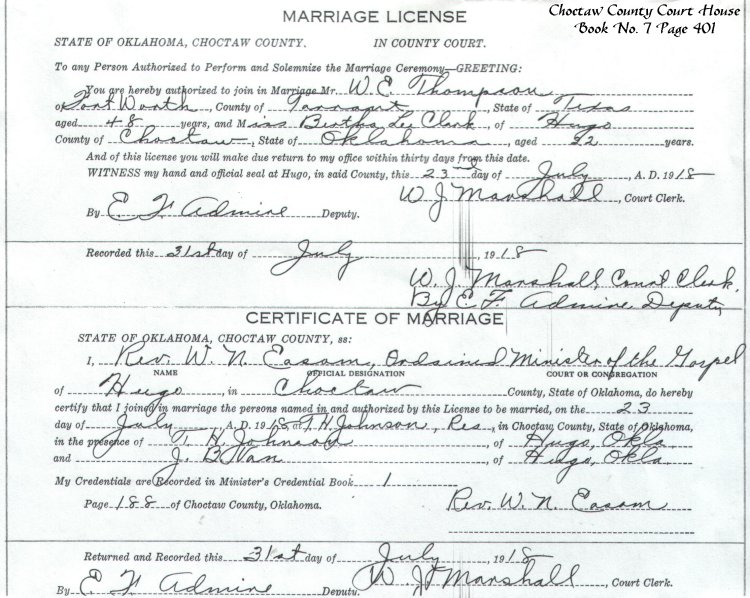 MARRIAGE LICENSE
Choctaw County Court House
Book No. 7 Page 401
STATE OF OKLAHOMA, CHOCTAW COUNTY. IN COUNTY COURT.
To any Person Authorized to Perform and Solemnize the Marriage Ceremony—GREETING:
You are hereby authorized to join in Marriage Mr. W. E. Thompson
of Fort Worth, County of Tarrant, State of Texas
aged 48 years, and Miss Birtha Lee Clark, of Hugo
County of Choctaw, State of Oklahoma, aged 22 years.
And of this license you will make due return to my office within thirty days from this date.
WITNESS my hand and official seal at Hugo, in said County, this 23 day of July, A. D. 1918
W J Marshall, Court Clerk.
By E F Admire Deputy.
Recorded this 31st day of July, 1918
W. J. Marshall, Court Clerk,
By E. F. Admire, Deputy
CERTIFICATE OF MARRIAGE
STATE OF OKLAHOMA, CHOCTAW COUNTY, ss:
I, Rev. W. N. Easom, Ordained Minister of the Gospel
NAME OFFICIAL DESIGNATION COURT OR CONGREGATION
of Hugo, in Choctaw County, State of Oklahoma, do hereby
certify that I joined in marriage the persons named in and authorized by this License to be married, on the 23
day of July, A. D. 1918 at T. H. Johnson, Res, in Choctaw County, State of Oklahoma,
in the presence of T. H. Johnson, of Hugo, Okla
and J. B Van, of Hugo, Okla
My Credentials are Recorded in Minister's Credential Book 1
Page 188 of Choctaw County, Oklahoma. Rev. W. N. Easom
Returned and Recorded this 31st day of July, 1918
By E F Admire Deputy. W J Marshall, Court Clerk.